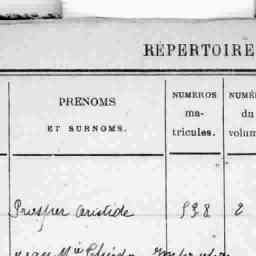 REPERTOIRE
PRENOMS
ET SURNOMS.
NUMEROS
ma-
tricules.
NUMÉ
du
volum
Prosper Aristide 598 2
Jean Mie